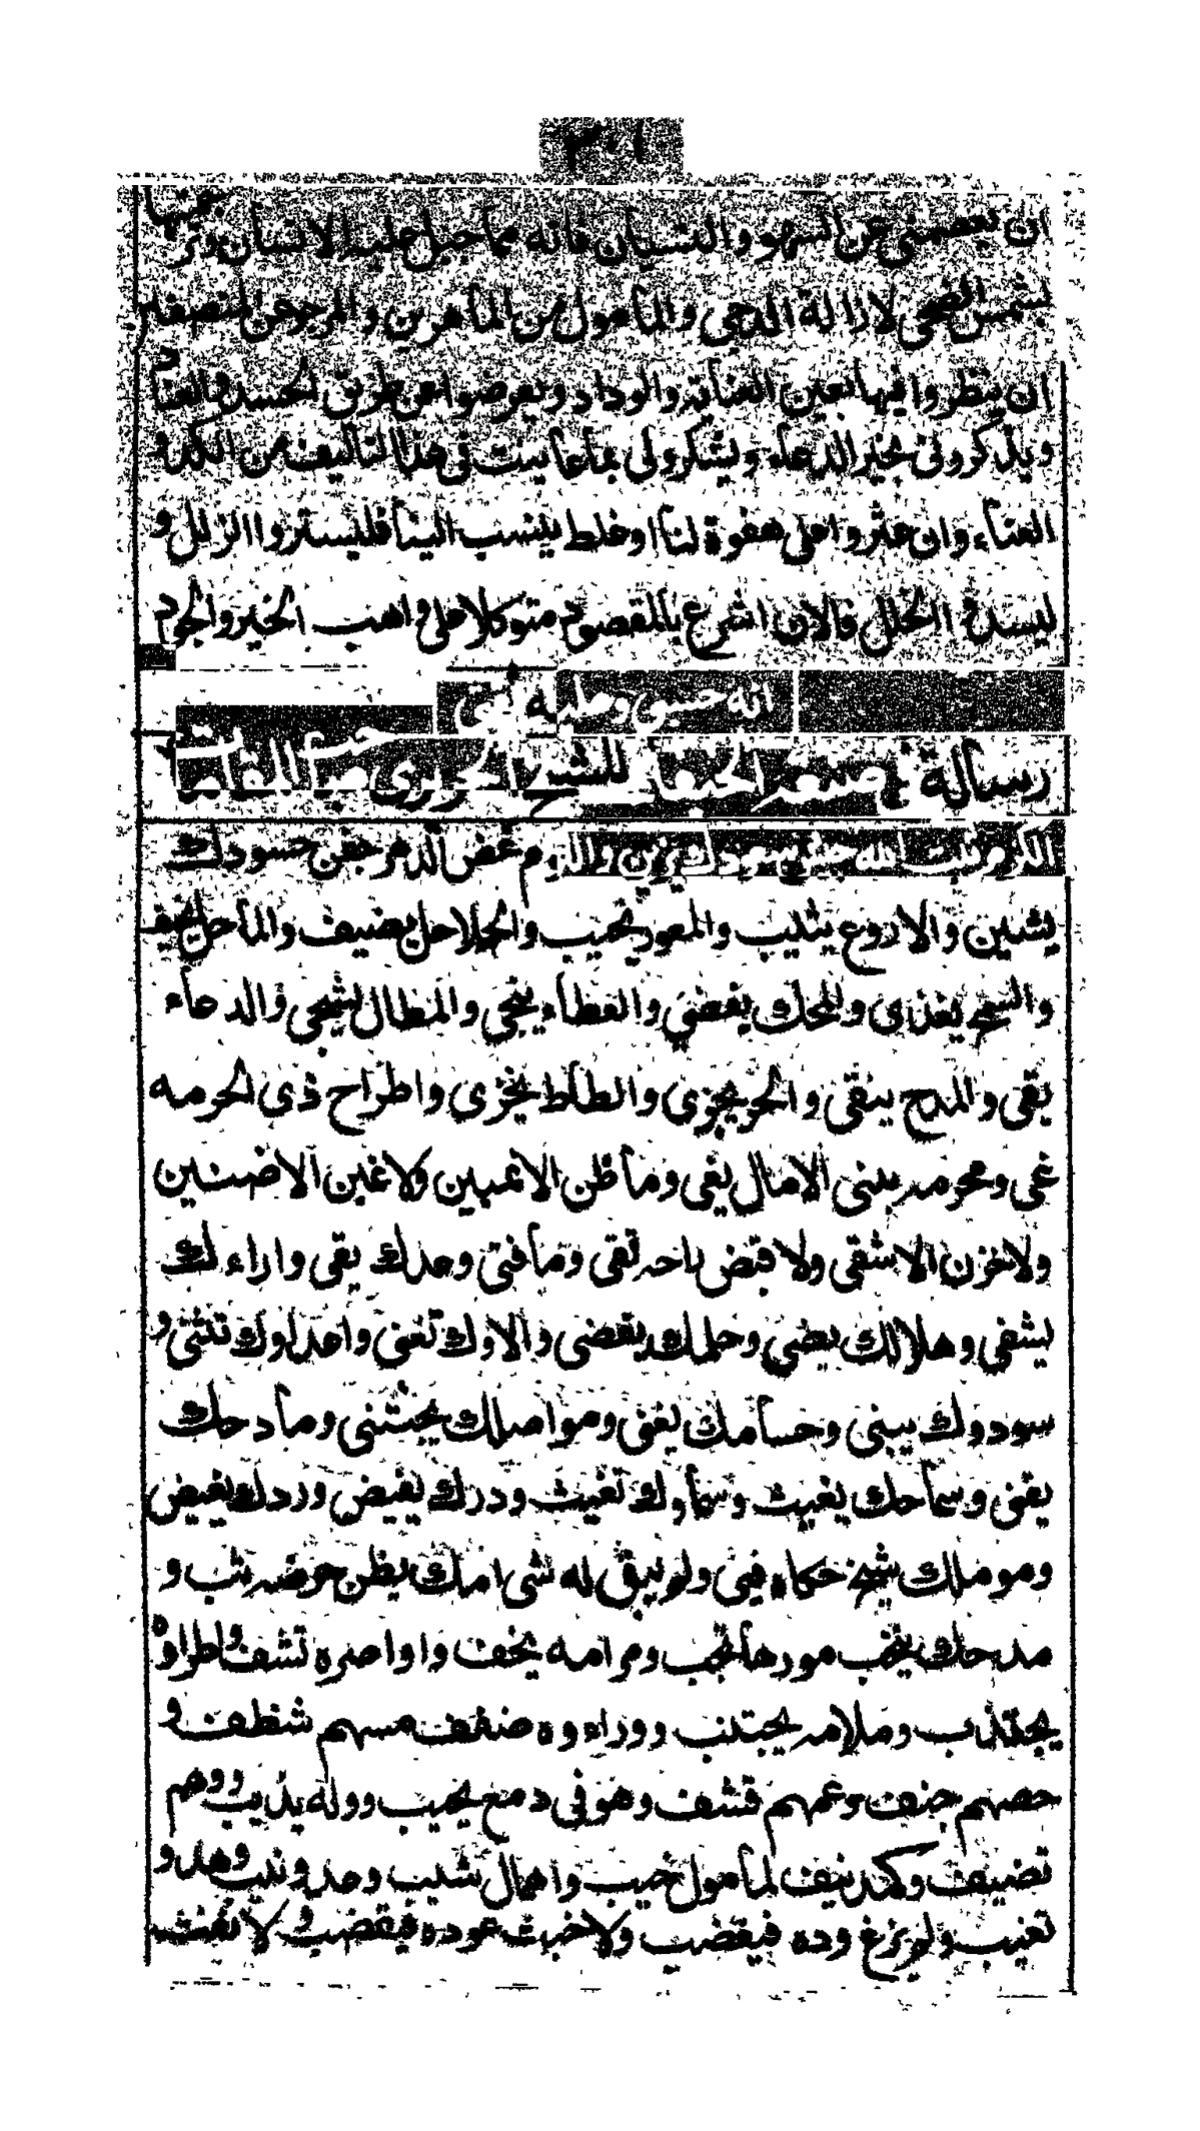 ٢٠١
ان يعصمنى عن السهو والنسيان فانه مما جبل عليه الانسان وترجمتها
بشمس الضحى لازالة الدجى والمأمول من الماهرين والمرجو عن المنصفين
ان ينظروا فيها بعين العناية والوداد ويعرضوا عن طريق الحسد والعناد
ويذكرونى بخير الدعاء ويشكرولى بما عاينت فى هذا التأليف من الكد و
العناء وان عثروا على هفوة لنا او خلط ينسب الينا فليستروا الزلل و
ليسدوا الخلل فالان اشرع بالمقصود متوكلا على واهب الخير والجود
انه حسبى وعليه
رسالة للشيخ الحريرى
الكرم ثبت الله جيش سعودك يزين واللوم غض الدهر جفن حسودك
يشين والاروع يثيب والمعور يخيب والحلاحل يضيف والماحل يخيف
والسمح يغذى والمحك يقضى والعطاء ينجى والمطال يشجى والدعاء
يقى والمدح ينقى والحر يجزى والطاط يخزى واطراح ذى الحرمه
غى ومحرمه بنى الامال بغى وما ظن الا غبين ولا غبن الا ضنين
ولا خزن الا شقى ولا قبض راحه تقى وما فتئ وعدك يفى واراءك
يشفى وهلالك يضئ وحلمك يغضى والاوك تغنى واعداوك تثنى و
سوددك يبنى وحسامك يفنى ومواصلك يجتنى ومادحك
يقنى وسماحك يغيث وسماوك تغيث ودرك يفيض وردك يغيض
ومومولك شيخ حكاه فئ ولم يبق له شى امك بظن حرصه يثب و
مدحك بنخب مهورها تجب ومرامه يخف واواصره تشف واطراوه
يجتذب وملامه يجتنب ووراءه ضفف مسهم شظف و
حصهم جنف وعمهم قشف وهو فى دمع يجيب ووله يذيب ووهم
تضيف وكمد نيف لمأمول خيب واهمال شيب وعدو نيب وهدو
تغيب ولم يزغ وده فيغضب ولا خبث عوده فيقضب ولا نفث